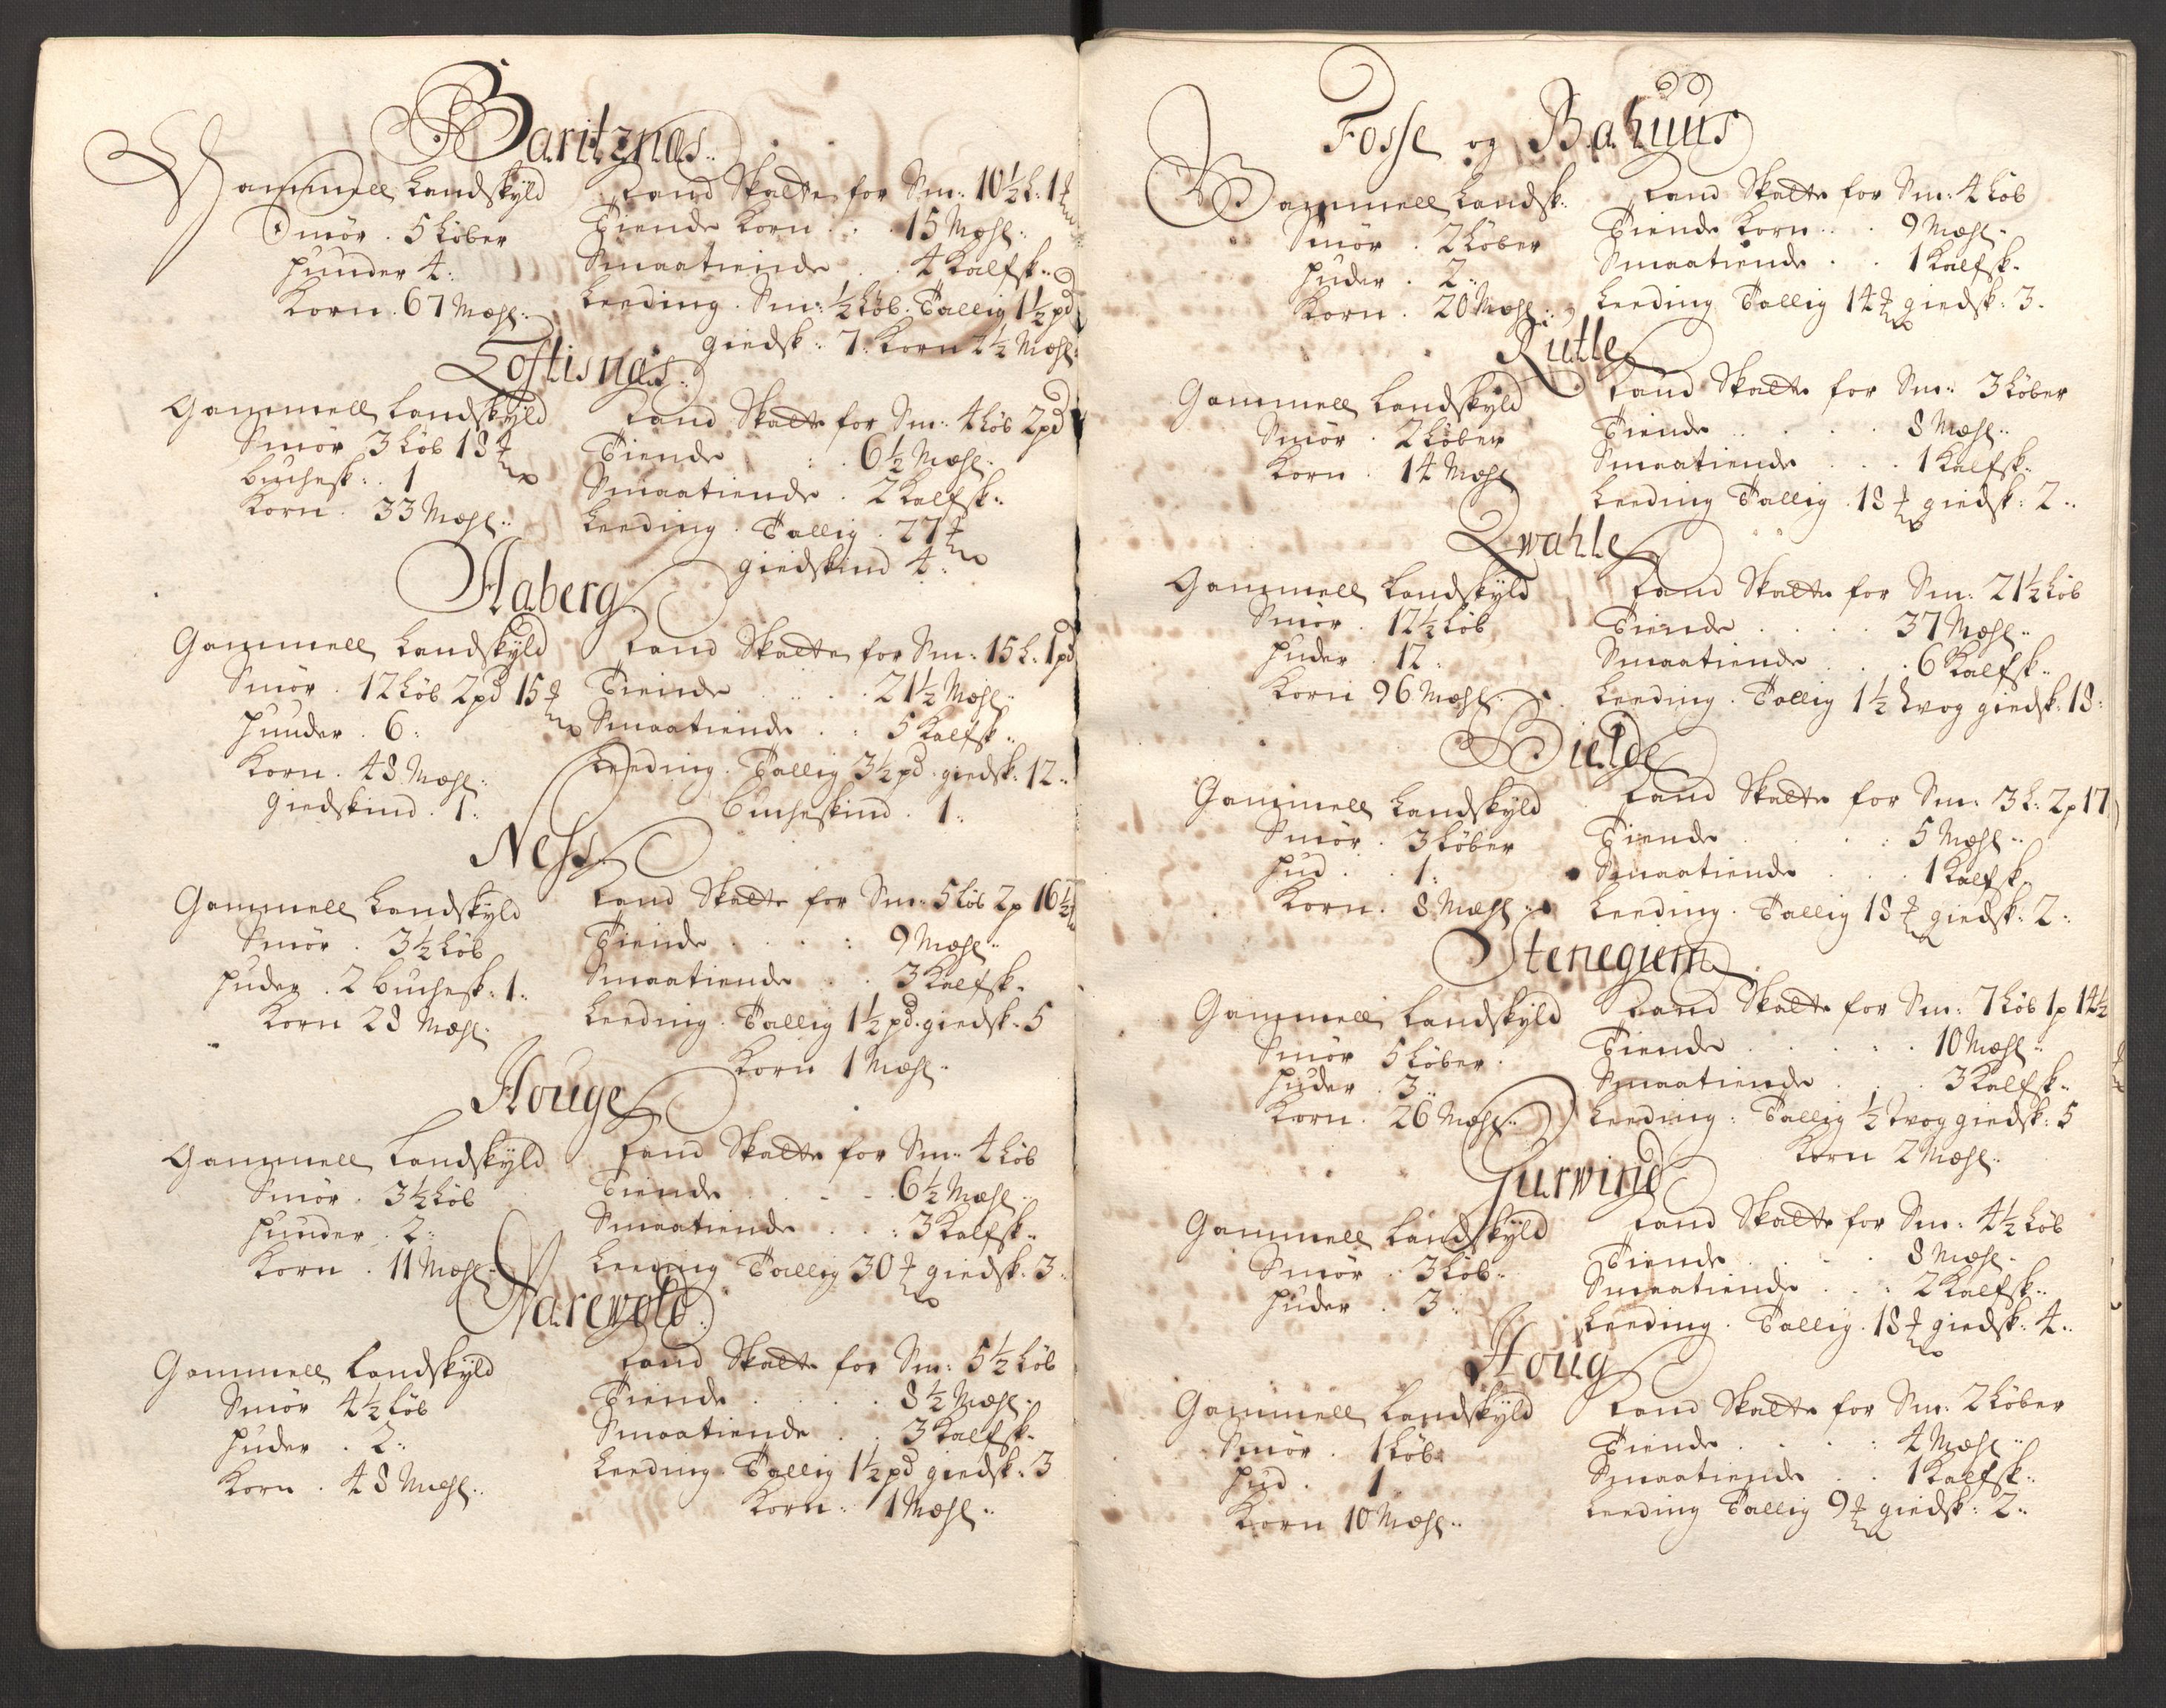 Baritznæs
Gammell Landskyld
Smör . 5 Löber
Huuder 4 :
Korn . 67 Mæhl ..
Land Skatte for Sm: 10½ L: 1 ℔
Tiende Korn . . 15 Mæhl ..
Smaatiende . . 4 Kalfsk ..
Leeding . Sm: ½ Löb . Tallig 1½ pd
giedsk : 7 . Korn 1½ Mæhl :
Loftisnæs
Gammell Landskyld
Smör 3 Löb 18 ℔
buchesk : . 1
Korn . 33 Mæhl ..
Land Skatte for Sm: 4 Löb 2 pd
Tiende . . 6½ Mæhl .
Smaatiende . 2 Kalfsk ..
Leeding . Tallig . 27 ℔
giedskind 4 .
Aaberg
Gammell Landskyld
Smör . 12 Löb 2 pd 15 ℔
Huuder . 6 :
Korn . 48 Mæhl ..
giedskind . 1 :
Land Skatte for Sm: 15 L: 1 pd
Tiende . . . 21½ Mæhl ..
Smaatiende . . 5 Kalfsk ..
Leeding . Tallig 3½ pd . giedsk : 12 ..
bucheskind . 1 :
Ness
Gammell Landskyld
Smör . 3½ Löb
Huder . 2 buchesk : 1 ..
Korn 28 Mæhl .
Land Skatte for Sm: 5 Löb 2 p 16½ ℔
Tiende . . . : 9 Mæhl ..
Smaatiende . . 3 Kalfsk .
Leeding . Tallig 1½ pd . giedsk : 5
Korn 1 Mæhl ..
Houge
Gammell Landskyld
Smör . 3½ Löb
Huuder . 2 :
Korn . 11 Mæhl ..
Land Skatte for Sm: 4 Löb
Tiende . . . 6½ Mæhl ..
Smaatiende . . : 3 Kalfsk ..
Leeding Tallig 30 ℔ giedsk : 3 ..
Narevold
Gammell Landskyld
Smör 4½ Löb
Huder . 2 :
Korn . 48 Mæhl ..
Land Skatte for Sm: 5½ Löb
Tiende . . . 8½ Mæhl .
Smaatiende . . 3 Kalfsk .
Leeding . Tallig 1½ pd giedsk : 3
Korn : 1 Mæhl ..
Fosse og Bahuus
Gammell Landsk :
Smör . 2 Löber
Huder . 2 ..
Korn . 20 Mæhl ..
Land Skatte for Sm: 4 Löb
Tiende Korn . . 9 Mæhl .
Smaatiende . . 1 Kalfsk .
Leeding Tallig 14 ℔ giedsk : 3 .
Rutle
Gammell Landskyld
Smör . 2 Löber
Korn . 14 Mæhl
Land Skatte for Sm: 3 Löber
Tiende . . . . 8 Mæhl ..
Smaatiende . . . 1 Kalfsk ..
Leeding Tallig . 18 ℔ giedsk : 2 ..
Qwahle
Gammell Landskyld
Smör . 12½ Löb
Huder . 12 :
Korn 96 Mæhl .
Land Skatte for Sm: 21½ Löb
Tiende . . . . 37 Mæhl ..
Smaatiende . . . 6 Kalfsk ..
Leeding . Tallig 1½ Woog giedsk : 18 :
Bielde
Gammell Landskyld
Smör . 3 Löber
Hud . . 1 :
Korn . 8 Mæhl ..
Land Skatte for Sm: 3 L: 2 p 17
Tiende . . . : 5 Mæhl ..
Smaatiende . . . 1 Kalfsk
Leeding . Tallig 18 ℔ giedsk : 2 :
Stenegiem
Gammell Landskyld
Smör 5 Löber .
Huder . 3 ..
Korn . 26 Mæhl ..
Land Skatte for Sm: 7 Löb 1 p 14½ ℔
Tiende . . . . 10 Mæhl ..
Smaatiende . . . 3 Kalfsk ..
Leeding : Tallig ½ Woog giedsk : 5
Korn 2 Mæhl ..
Gurwind
Gammell Landskyld
Smör . 3 Löb .
Huder . 3 :
Land Skatte for Sm: 4½ Löb
Tiende . . . 8 Mæhl .
Smaatiende . . : 2 Kalfsk ..
Leeding . Tallig . 18 ℔ giedsk : 4 ..
Houg
Gammell Landskyld
Smör . 1 Löb
Hud . 1
Korn 10 Mæhl ..
Land Skatte for Sm: 2 Löber
Tiende . . . : 4 Mæhl ..
Smaatiende . . 1 Kalfsk ..
Leeding Tallig 9 ℔ giedsk : 2 ..